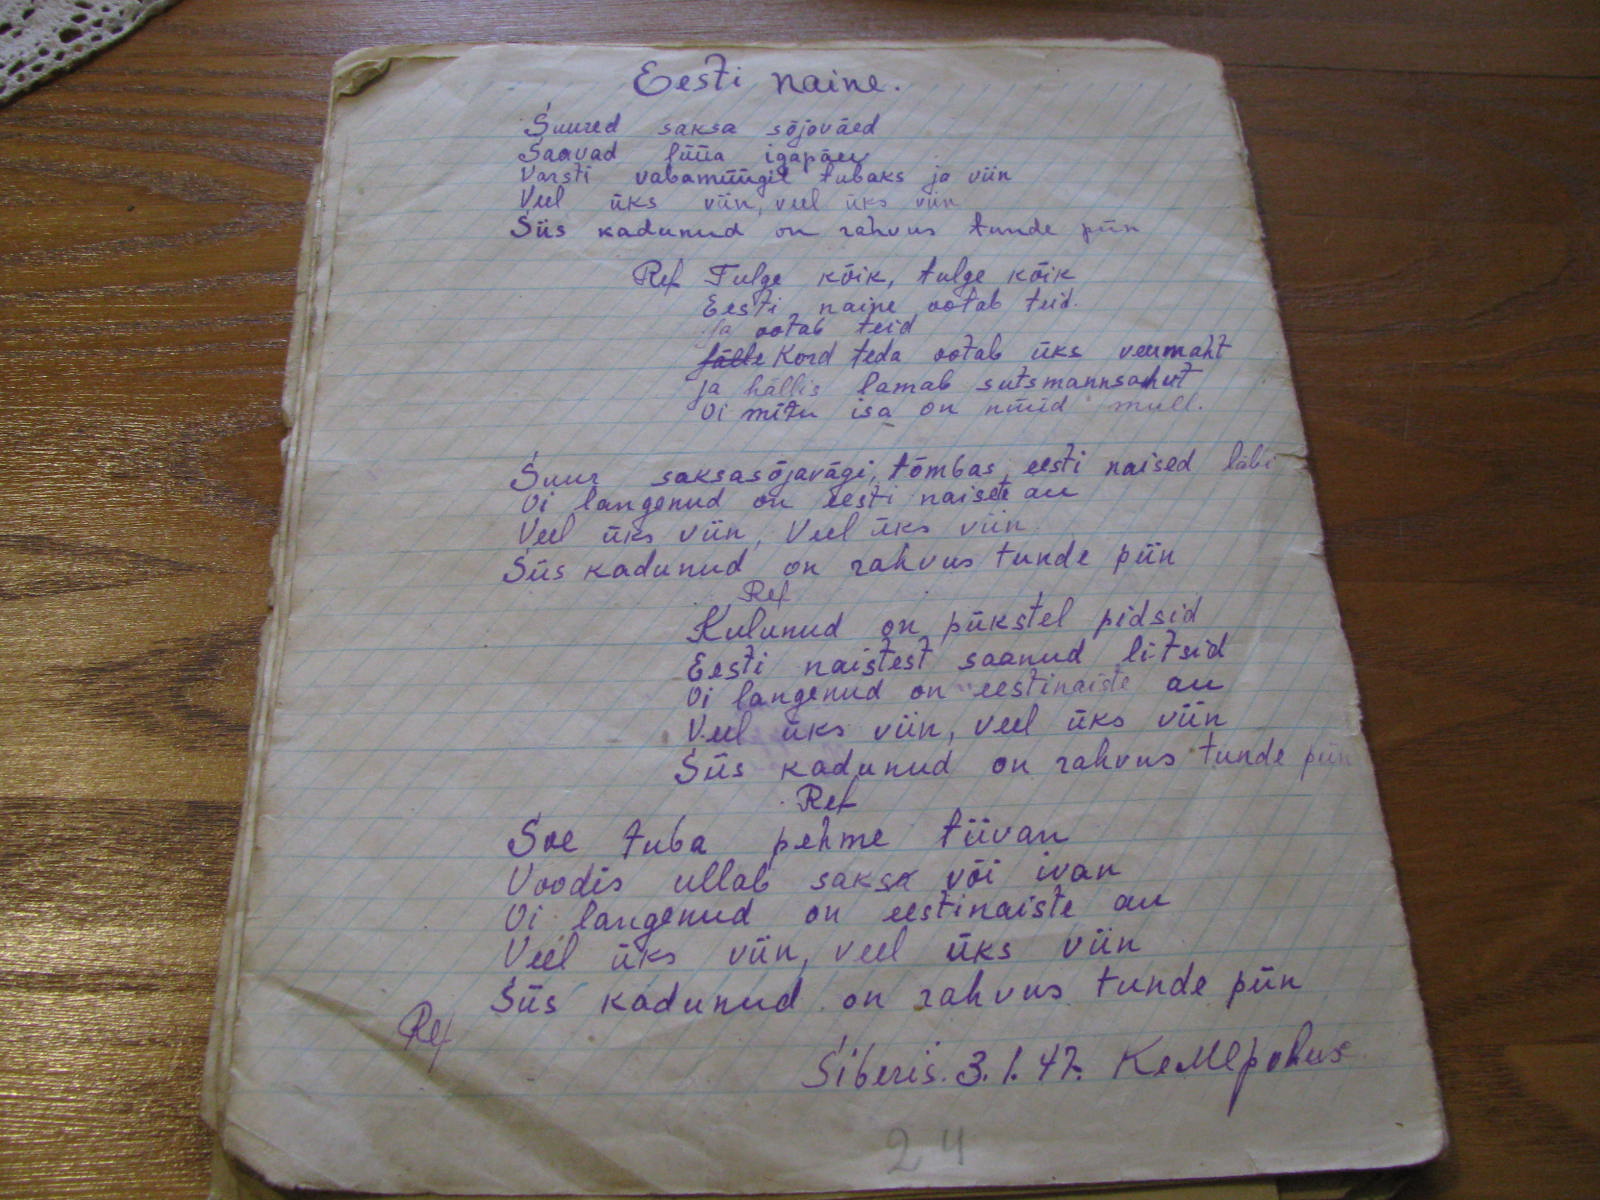 Eesti naine.
Suured saksa sõjaväed
Saavad lüüa igapäev
Varsti vabamüügil tubaks ja viin
Veel üks viin, veel üks viin
Siis kadunud on rahvus tunde piin
Ref Tulge kõik, tulge kõik
Eesti naine ootab teid.
ja ootab teid
Kord teda ootab üks veermaht
ja hällis lamab sutsmannsahvt
Oi mitu isa on nüüd mull.
Suur saksasõjavägi, tõmbas eesti naised läbi
Oi langenud on eesti naiste au
Veel üks viin, Veel üks viin
Siis kadunud on rahvus tunde piin
Ref
Kulunud on pükstel pidsid
Eesti naistest saanud litsid
Oi langenud on eestinaiste au
Veel üks viin, veel üks viin
Siis kadunud on rahvus tunde piin
Ref
Soe tuba pehme tiivan
Voodis ullab saksa või ivan
Oi langenud on eestinaiste au
Veel üks viin, veel üks viin
Siis kadunud on rahvus tunde piin
Ref
Siberis. 3. 1. 47.
24